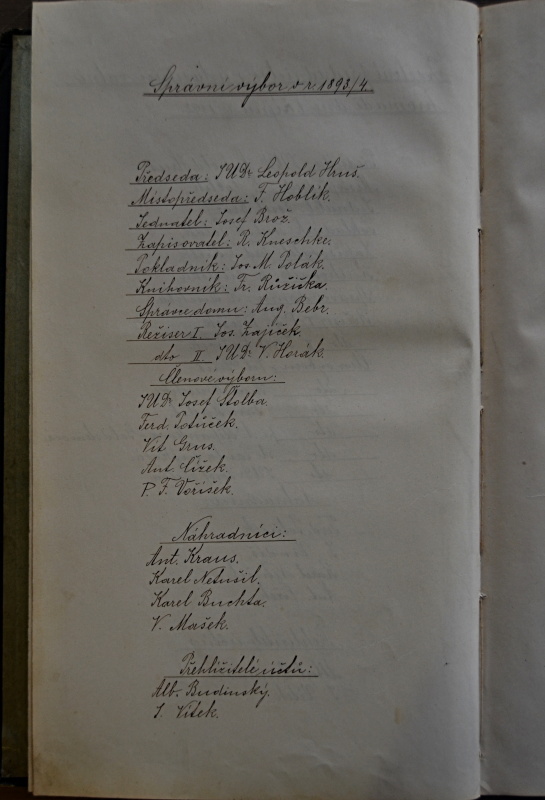 Správní výbor v r. 1893/4.
Předseda: JUDr Leopold Hruš.
Místopředseda: F. Hoblík.
Jednatel: Josef Brož.
Zapisovatel: R. Kneschke.
Pokladník: Jos. M. Polák.
Knihovník: Fr. Růžička.
Správce domu: Aug. Bebr.
Režiser I. Jos. Zajíček.
dto II. JUDr V. Horák.
Členové výboru:
JUDr Josef Štolba.
Ferd. Potůček.
Vít Grus.
Ant. Čížek.
P. F. Voříšek.
Náhradníci:
Ant. Kraus.
Karel Netušil.
Karel Buchta.
V. Mašek.
Přehlížitelé účtů:
Alb. Budinský.
J. Vítek.